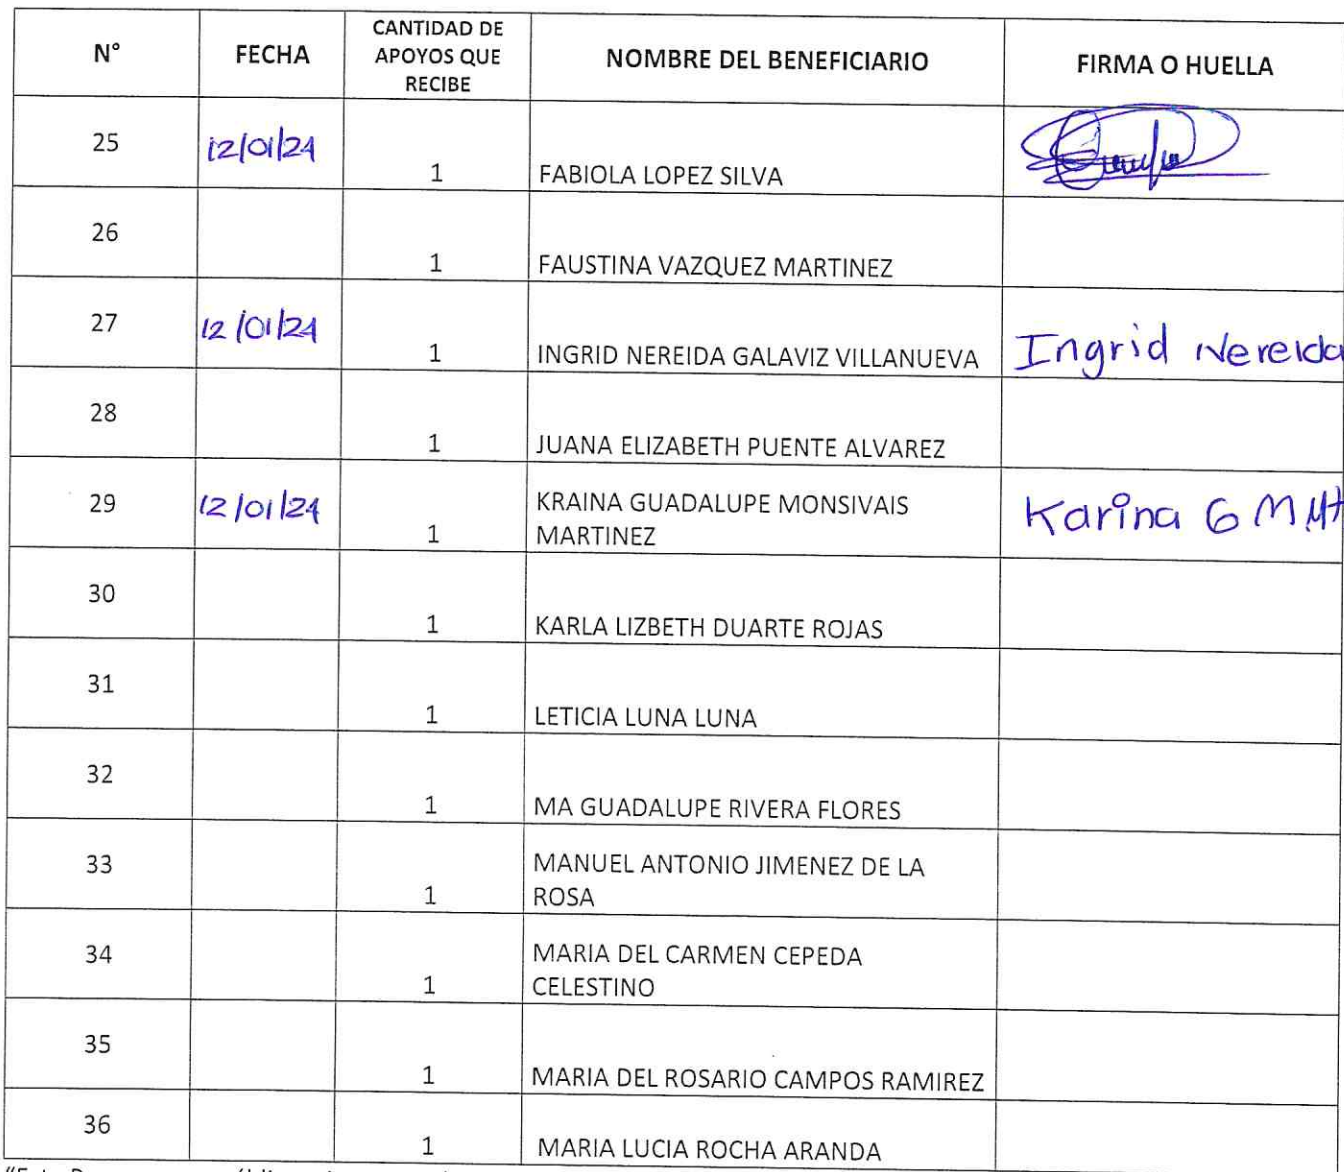 N° FECHA CANTIDAD DE APOYOS QUE RECIBE NOMBRE DEL BENEFICIARIO FIRMA O HUELLA
25 12/01/24 1 FABIOLA LOPEZ SILVA
26 1 FAUSTINA VAZQUEZ MARTINEZ
27 12/01/24 1 INGRID NEREIDA GALAVIZ VILLANUEVA Ingrid Nereida
28 1 JUANA ELIZABETH PUENTE ALVAREZ
29 12/01/24 1 KRAINA GUADALUPE MONSIVAIS MARTINEZ Karina G M
30 1 KARLA LIZBETH DUARTE ROJAS
31 1 LETICIA LUNA LUNA
32 1 MA GUADALUPE RIVERA FLORES
33 1 MANUEL ANTONIO JIMENEZ DE LA ROSA
34 1 MARIA DEL CARMEN CEPEDA CELESTINO
35 1 MARIA DEL ROSARIO CAMPOS RAMIREZ
36 1 MARIA LUCIA ROCHA ARANDA